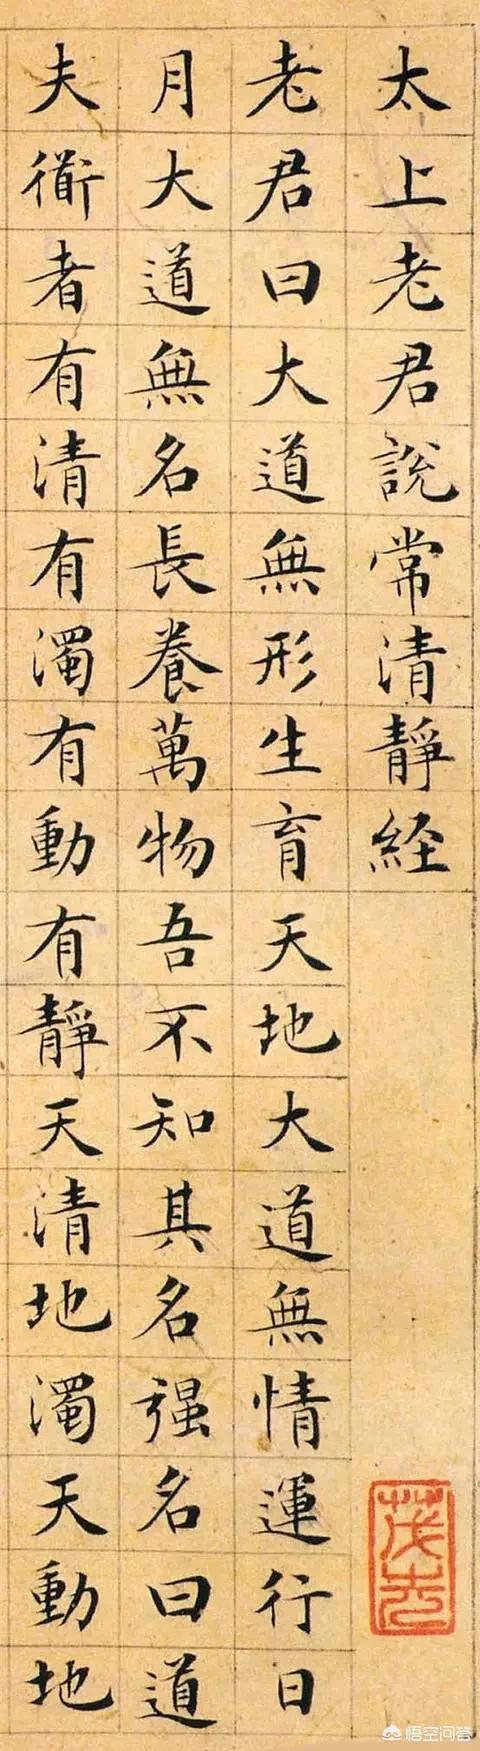 太上老君說常清靜経
老君曰大道無形生育天地大道無情運行日
月大道無名長養萬物吾不知其名强名曰道
夫衜者有清有濁有動有靜天清地濁天動地
悟空问答